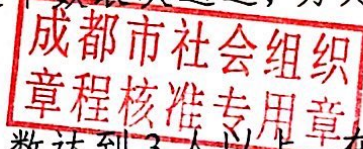 成都市社会组织
章程核准专用章
数达到3人以上